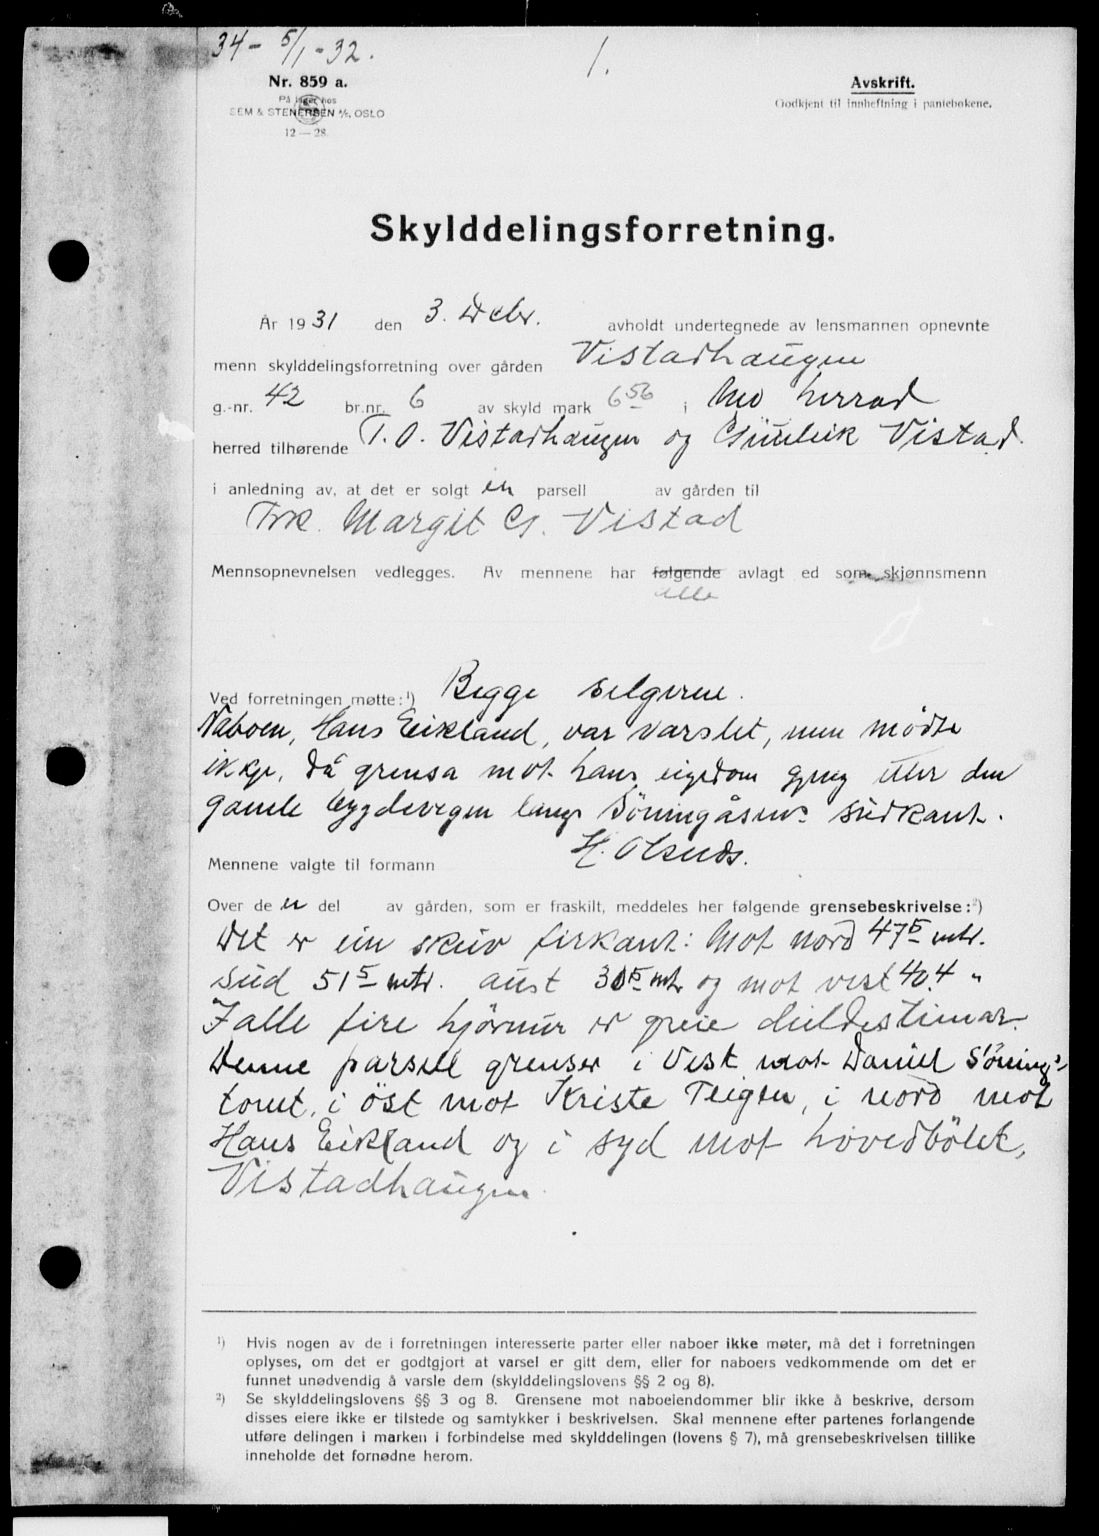 34 - 5/1 - 32.
1.
Nr. 859 a.
På lager hos
SEM & STENERSEN A/S, OSLO
12 — 28.
Avskrift.
Godkjent til innheftning i pantebøkene.
Skylddelingsforretning.
År 1931 den 3. Debr. avholdt undertegnede av lensmannen opnevnte
menn skylddelingsforretning over gården Vistadhaugen
g.-nr. 42 br.nr. 6 av skyld mark 6 56 i Mo herrad
herred tilhørende T. O. Vistadhaugen og Gunleik Vistad
i anledning av, at det er solgt ein parsell av gården til
Frk. Margit G. Vistad
Mennsopnevnelsen vedlegges. Av mennene har følgende avlagt ed som skjønnsmenn
alle
Ved forretningen møtte: ¹) Begge selgerne.
Naboen, Hans Eikland, var varslet, men mødte
ikkje, då grensa mot hans eigedom gjeng etter den
gamle bygdevegen langs Söningåsens südkant.
Mennene valgte til formann H. Olsnes.
Over de en del av gården, som er fraskilt, meddeles her følgende grensebeskrivelse: ²)
Det er ein skeiv firkant: Mot nord 47 5 mtr.
süd 51 5 mtr. aust 30 5 mtr og mot vest 40.4 "
I alle fire hjörnur er greie deildesteinar.
Denne parsell grenser i Vest mot Daniel Söning-
tomt, i öst mot Kriste Teigen, i nord mot
Hans Eikland og i syd mot hovedbölet,
Vistadhaugen.
¹) Hvis nogen av de i forretningen interesserte parter eller naboer ikke møter, må det i forretningen
oplyses, om det er godtgjort at varsel er gitt dem, eller for naboers vedkommende om det er
funnet unødvendig å varsle dem (skylddelingslovens §§ 2 og 8).
²) Se skylddelingslovens §§ 3 og 8. Grensene mot naboeiendommer blir ikke å beskrive, dersom
disses eiere ikke er tilstede og samtykker i beskrivelsen. Skal mennene efter partenes forlangende
utføre delingen i marken i forbindelse med skylddelingen (lovens § 7), må grensebeskrivelsen tillike
inneholde det fornødne herom.